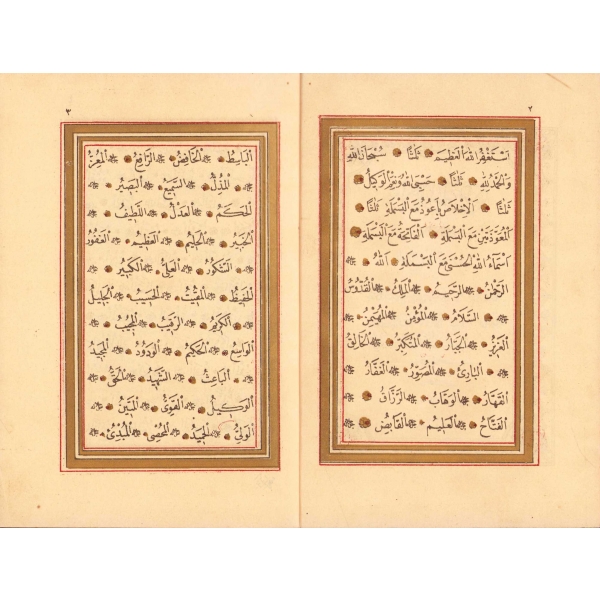 ٢
اَسْتَغْفِرُ اللهَ الْعَظِيمَ ثلثًا سُبْحَانَ اللهِ
وَالْحَمْدُ لِلهِ ثلثًا حَسْبِيَ اللهُ وَنِعْمَ الْوَكِيلُ
ثلثًا الْاِخْلَاصِ بِاَعُوذُ مَعَ الْبَسْمَلَةِ ثلثًا
الْمُعَوَّذَتَيْنِ مَعَ الْبَسْمَلَةِ الْفَاتِحَةَ مَعَ الْبَسْمَلَةِ
اَسْمَاءُ اللهِ الْحُسْنَى مَعَ الْبَسْمَلَةِ اَللهُ
الرَّحْمٰنُ الرَّحِيمُ الْمَلِكُ الْقُدُّوسُ
السَّلَامُ الْمُؤْمِنُ الْمُهَيْمِنُ
الْعَزِيزُ الْجَبَّارُ الْمُتَكَبِّرُ الْخَالِقُ
الْبَارِئُ الْمُصَوِّرُ الْغَفَّارُ
الْقَهَّارُ الْوَهَّابُ الرَّزَّاقُ
الْفَتَّاحُ الْعَلِيمُ الْقَابِضُ
٣
الْبَاسِطُ الْخَافِضُ الرَّافِعُ الْمُعِزُّ
الْمُذِلُّ السَّمِيعُ الْبَصِيرُ
الْحَكَمُ الْعَدْلُ اللَّطِيفُ
الْخَبِيرُ الْحَلِيمُ الْعَظِيمُ الْغَفُورُ
الشَّكُورُ الْعَلِيُّ الْكَبِيرُ
الْحَفِيظُ الْمُقِيتُ الْحَسِيبُ الْجَلِيلُ
الْكَرِيمُ الرَّقِيبُ الْمُجِيبُ
الْوَاسِعُ الْحَكِيمُ الْوَدُودُ الْمَجِيدُ
الْبَاعِثُ الشَّهِيدُ الْحَقُّ
الْوَكِيلُ الْقَوِيُّ الْمَتِينُ
الْوَلِيُّ الْحَمِيدُ الْمُحْصِي الْمُبْدِئُ